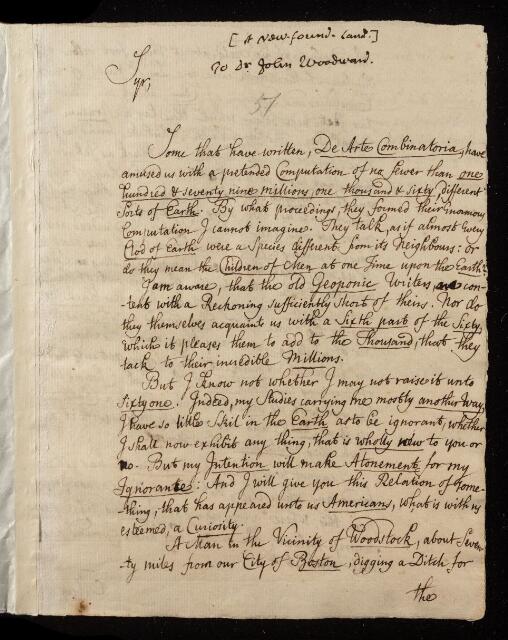 [A New-found-Land.]
To Dr John Woodward.
Syr,
57
Some that have written, De Arte Combinatoria, have
amused us with a pretended Computation of no fewer than one
hundred & seventy nine millions, one thousand & sixty different
Sorts of Earth. By what proceedings, they formed their inormous
Computation I cannot imagine. They talk, as if almost every
Clod of Earth were a Species different from its Neighbours: or
do they mean the Children of Men at one Time upon the Earth?
I am aware, that the old Geoponic Writers, are con-
tent with a Reckoning sufficiently short of theirs. Nor do
they themselves acquaint us with a Sixth part of the Sixty,
which it pleases them to add to the Thousand, that they
tack to their incredible Millions.
But I know not whether I may not raise it unto
Sixty one! Indeed, my Studies carrying me mostly another Way,
I have so little Skil in the Earth as to be ignorant, whether
I shall now exhibit any thing, that is wholly new to you or
no. But my Intention will make Atonement for my
Ignorance: And I will give you this Relation of some-
thing, that has appeared unto us Americans, what is with us
esteemed, a Curiosity.
A Man in the Vicinity of Woodstock, about Seven-
ty miles from our City of Boston, digging a Ditch for
the